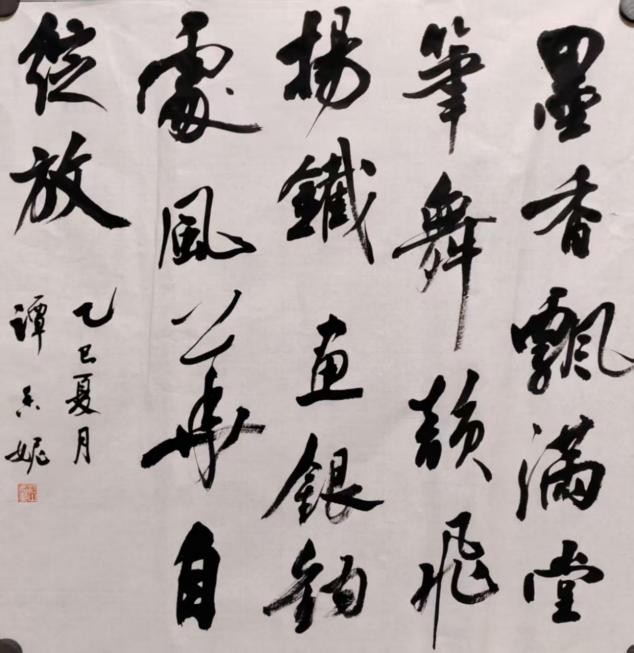 墨香飄滿堂
筆舞韻飛
揚鐵畫銀鈎
處風華自
綻放
乙巳夏月
譚冬妮